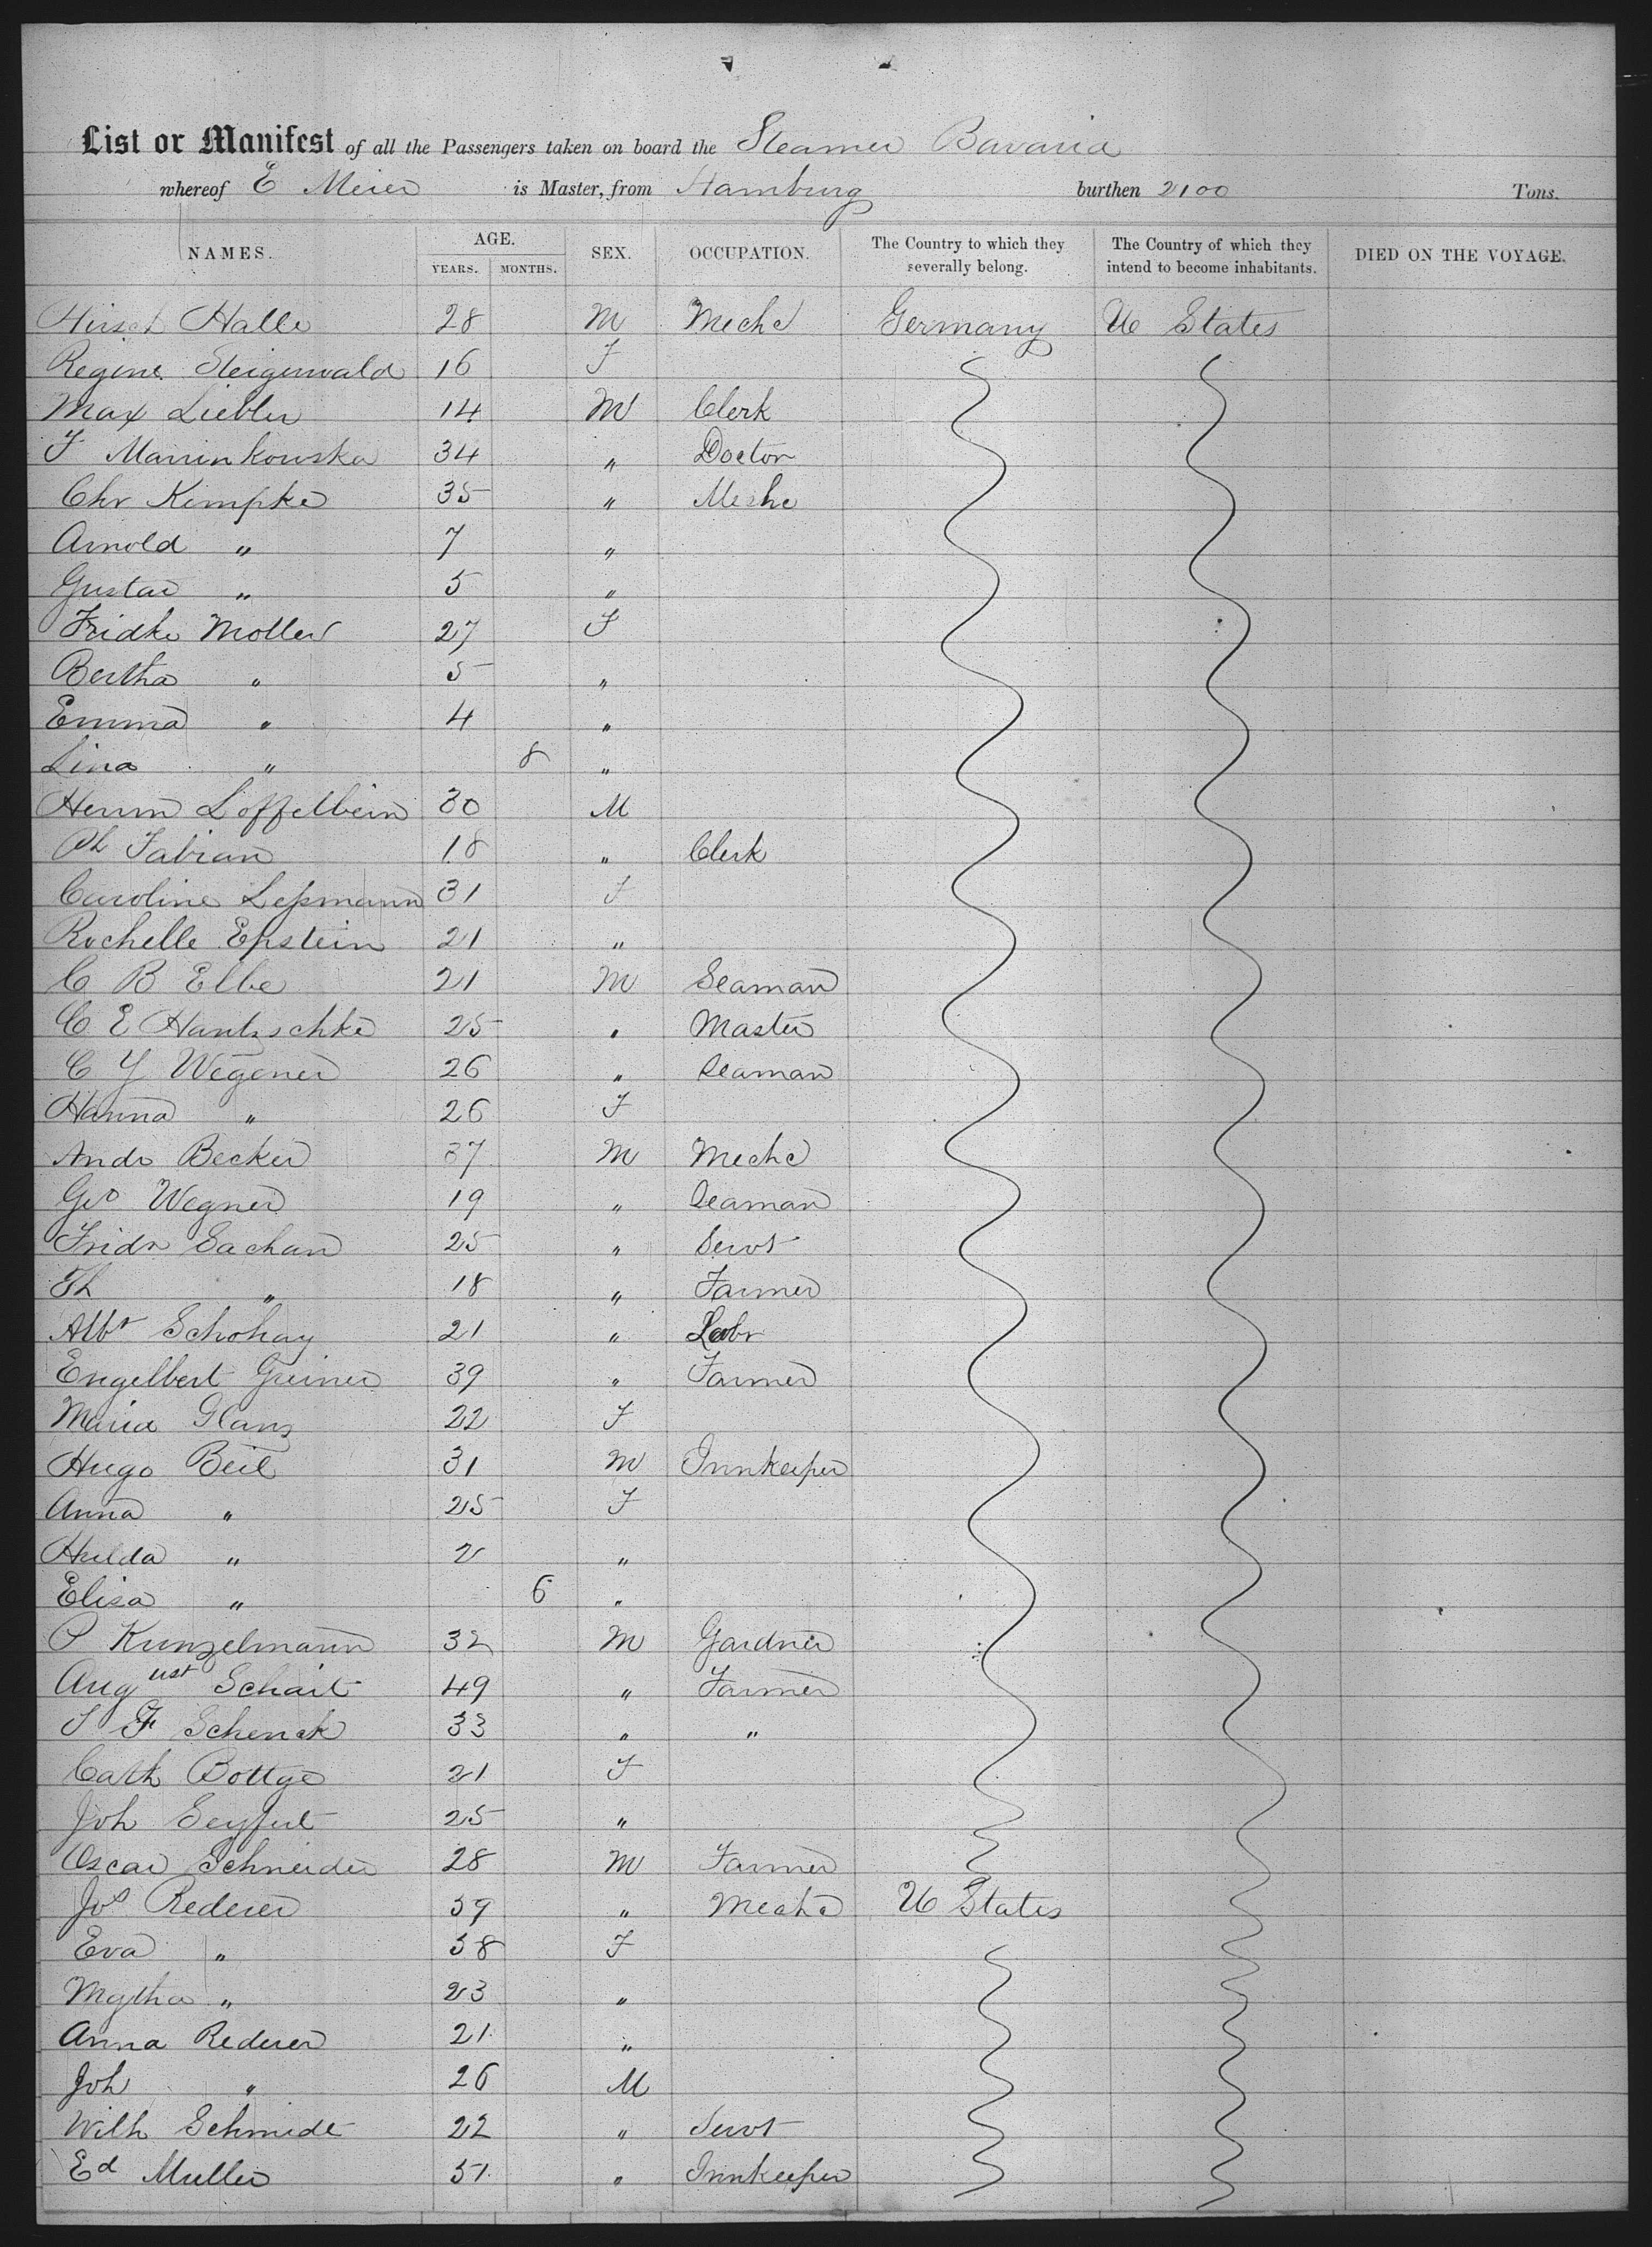 List or Manifest of all the Passengers taken on board the Steamer Bavaria
whereof E Meier is Master, from Hamburg burthen 2100 Tons.
NAMES. AGE. YEARS. MONTHS. SEX. OCCUPATION. The Country to which they severally belong. The Country of which they intend to become inhabitants. DIED ON THE VOYAGE.
Hirsch Halle 28 M Mechc Germany U States
Regine Steigerwald 16 F
Max Liebler 14 M Clerk
F 34 " Doctor
Chr Kempke 35 " Mechc
Arnold " 7 "
Gustav " 5 "
Fridke Moller 27 F
Bertha " 5 "
Emma " 4 "
Lina " 8 "
Herrm Loffelbein 30 M
Ph Fabian 18 " Clerk
Caroline Lessmann 31 F
Rochelle Epstein 21 "
C B Elbe 21 M Seaman
C E Hantzschke 25 " Master
C Y Wegener 26 " Seaman
Hanna " 26 F
Andr Becker 37 M Mechc
Geo Wegner 19 " Seaman
Fridr Sachan 25 " Servt
Th " 18 " Farmer
Albt Schohay 21 " Labr
Engelbert Greiner 39 " Farmer
Maria Glanz 22 F
Hugo Beil 31 M Innkeeper
Anna " 25 F
Hulda " 2 "
Elisa " 6 "
P Kunzelmann 32 M Gardner
August Schait 49 " Farmer
S F Schenck 33 " "
Cath Bottge 21 F
Joh Seyfert 25 "
Oscar Schneider 28 M Farmer
Jos Rederer 59 " Mechc U States
Eva " 58 F
Mgtha " 23 "
Anna Rederer 21 "
Joh " 26 M
Wilh Schmidt 22 " Servt
Ed Muller 51 " Innkeeper